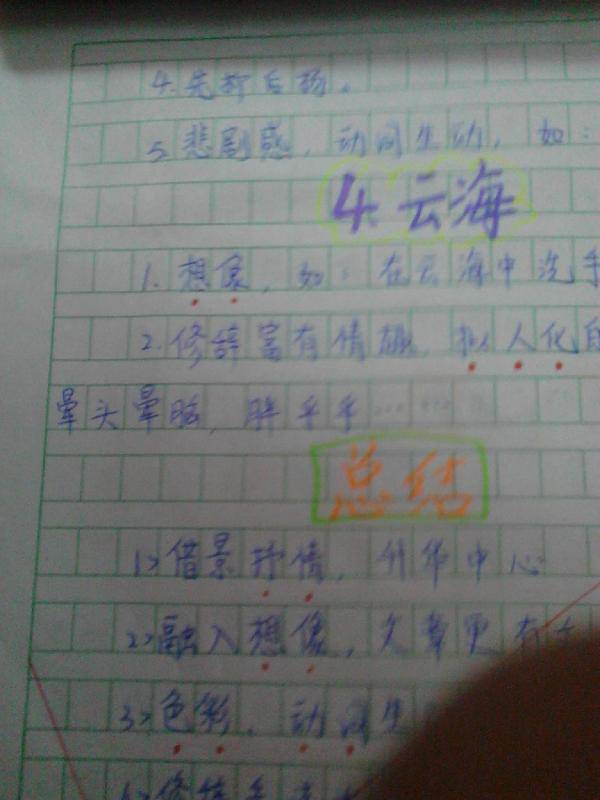 4.先抑后扬。
5.悲剧感，动词生动，如：
4.云海
1.想像，如：在云海中洗手
2.修辞富有情趣，拟人化
晕头晕脑，胖乎乎……
总结
1>借景抒情，升华中心
2>融入想像，文章更有
3>色彩、动词生